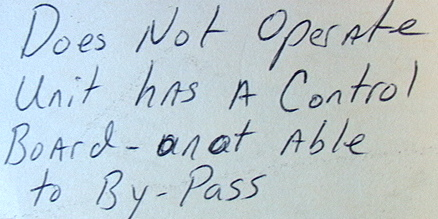 Does Not Operate
Unit has A Control
Board - anot Able
to By-Pass